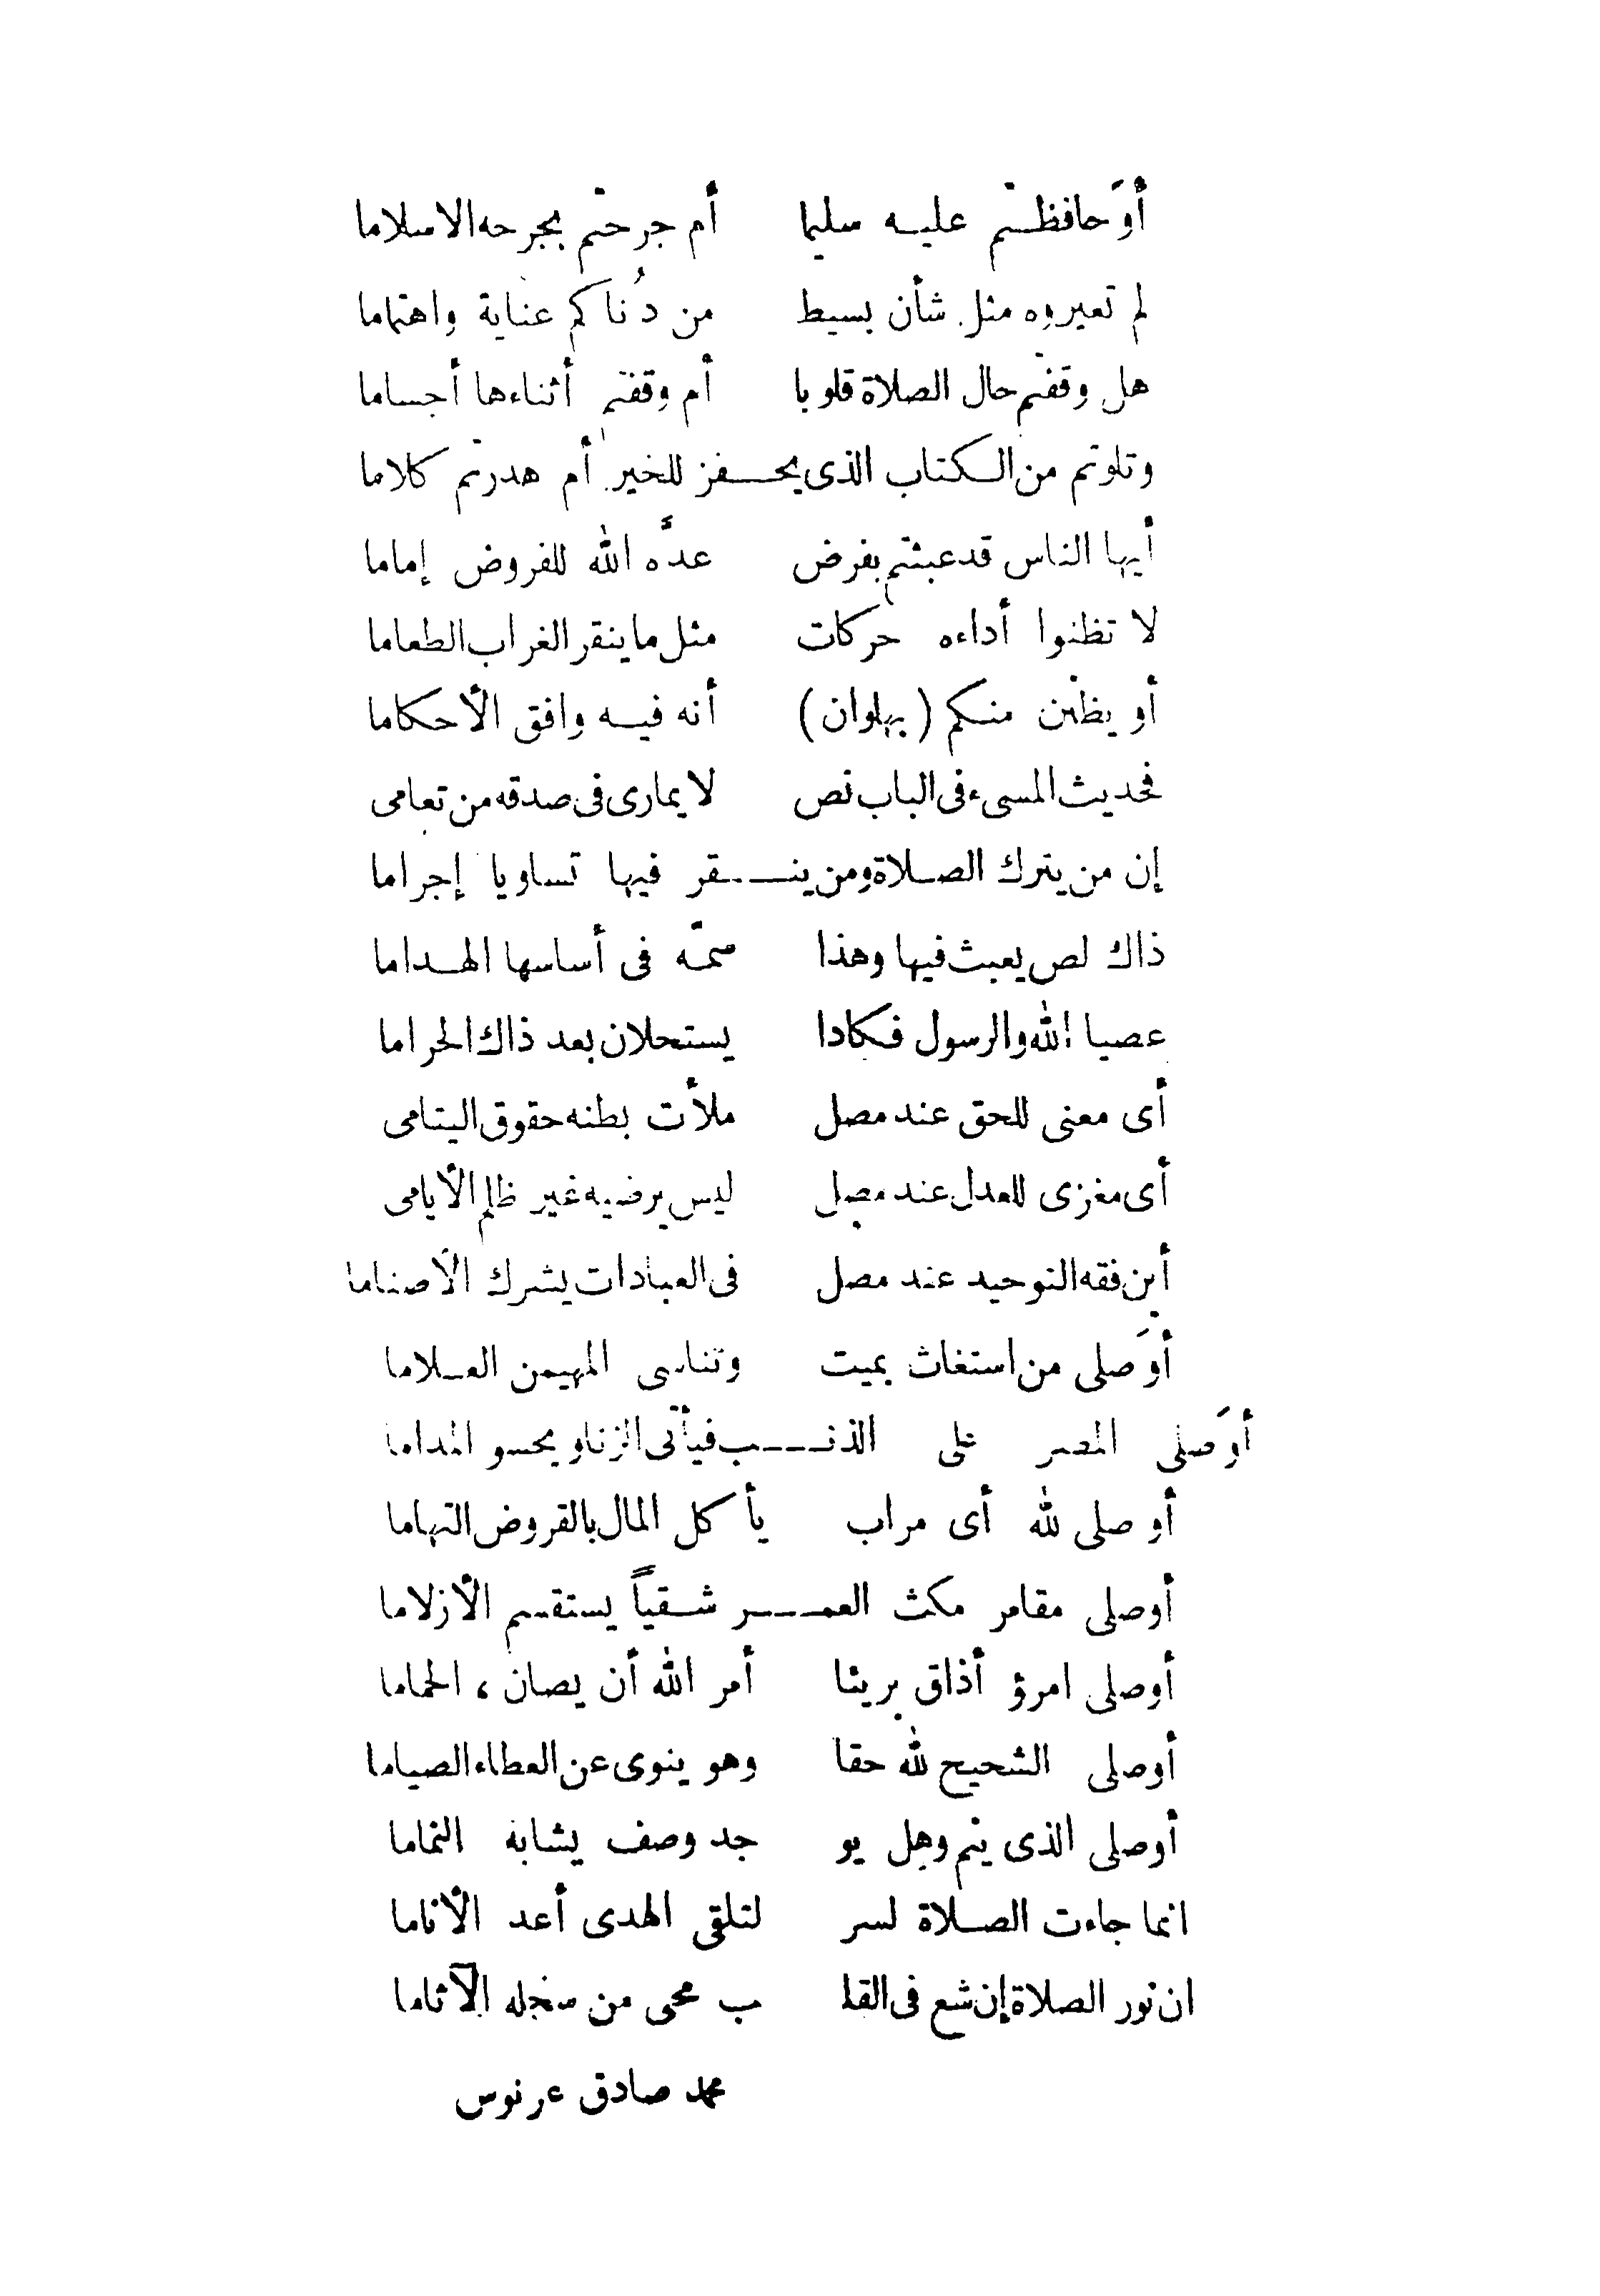 أوَحافظتم عليه سليما أم جرحتم بجرحه الاسلاما
لم تعيروه مثل شأن بسيط من دُناكم عناية واهتماما
هل وقفتم حال الصلاة قلوبا أم وقفتم أثناءها أجساما
وتلوتم من الكتاب الذى يحفز للخير أم هدرتم كلاما
أيها الناس قد عبثتم بفرض عدَّه الله للفروض إماما
لا تظنوا أداءه حركات مثل ما ينقر الغراب الطعاما
أو يظنن منكم (بهلوان) أنه فيه وافق الأحكاما
فحديث المسىء فى الباب نص لا يمارى فى صدقه من تعامى
إن من يترك الصلاة ومن ينقر فيها تساويا إجراما
ذاك لص يعبث فيها وهذا سمّه فى أساسها الهداما
عصيا الله والرسول فكادا يستحلان بعد ذاك الحراما
أى معنى للحق عند مصل ملأت بطنه حقوق اليتامى
أى مغزى للعدل عند مصل ليس يرضيه غير ظلم الأيامى
أين فقه التوحيد عند مصل فى العبادات يشرك الأصناما
أوَصلى من استغاث بميت وتناسى المهيمن العلاما
أوَصلى المصر على الذنب فيأتى الزنا ويحسو المداما
أو صلى لله أى مراب يأكل المال بالقروض التهاما
أوصلى مقامر مكث العمر شقياً يستقسم الأزلاما
أوصلى امرؤ أذاق بريئا أمر الله أن يصان ، الحماما
أوصلى الشحيح لله حقا وهو ينوى عن العطاء الصياما
أوصلى الذى ينم وهل يو جد وصف يشابه النماما
انما جاءت الصلاة لسر لتلقى الهدى أعد الأناما
ان نور الصلاة إن شع فى القلـ ـب محى من سجله الآثاما
محمد صادق عرنوس